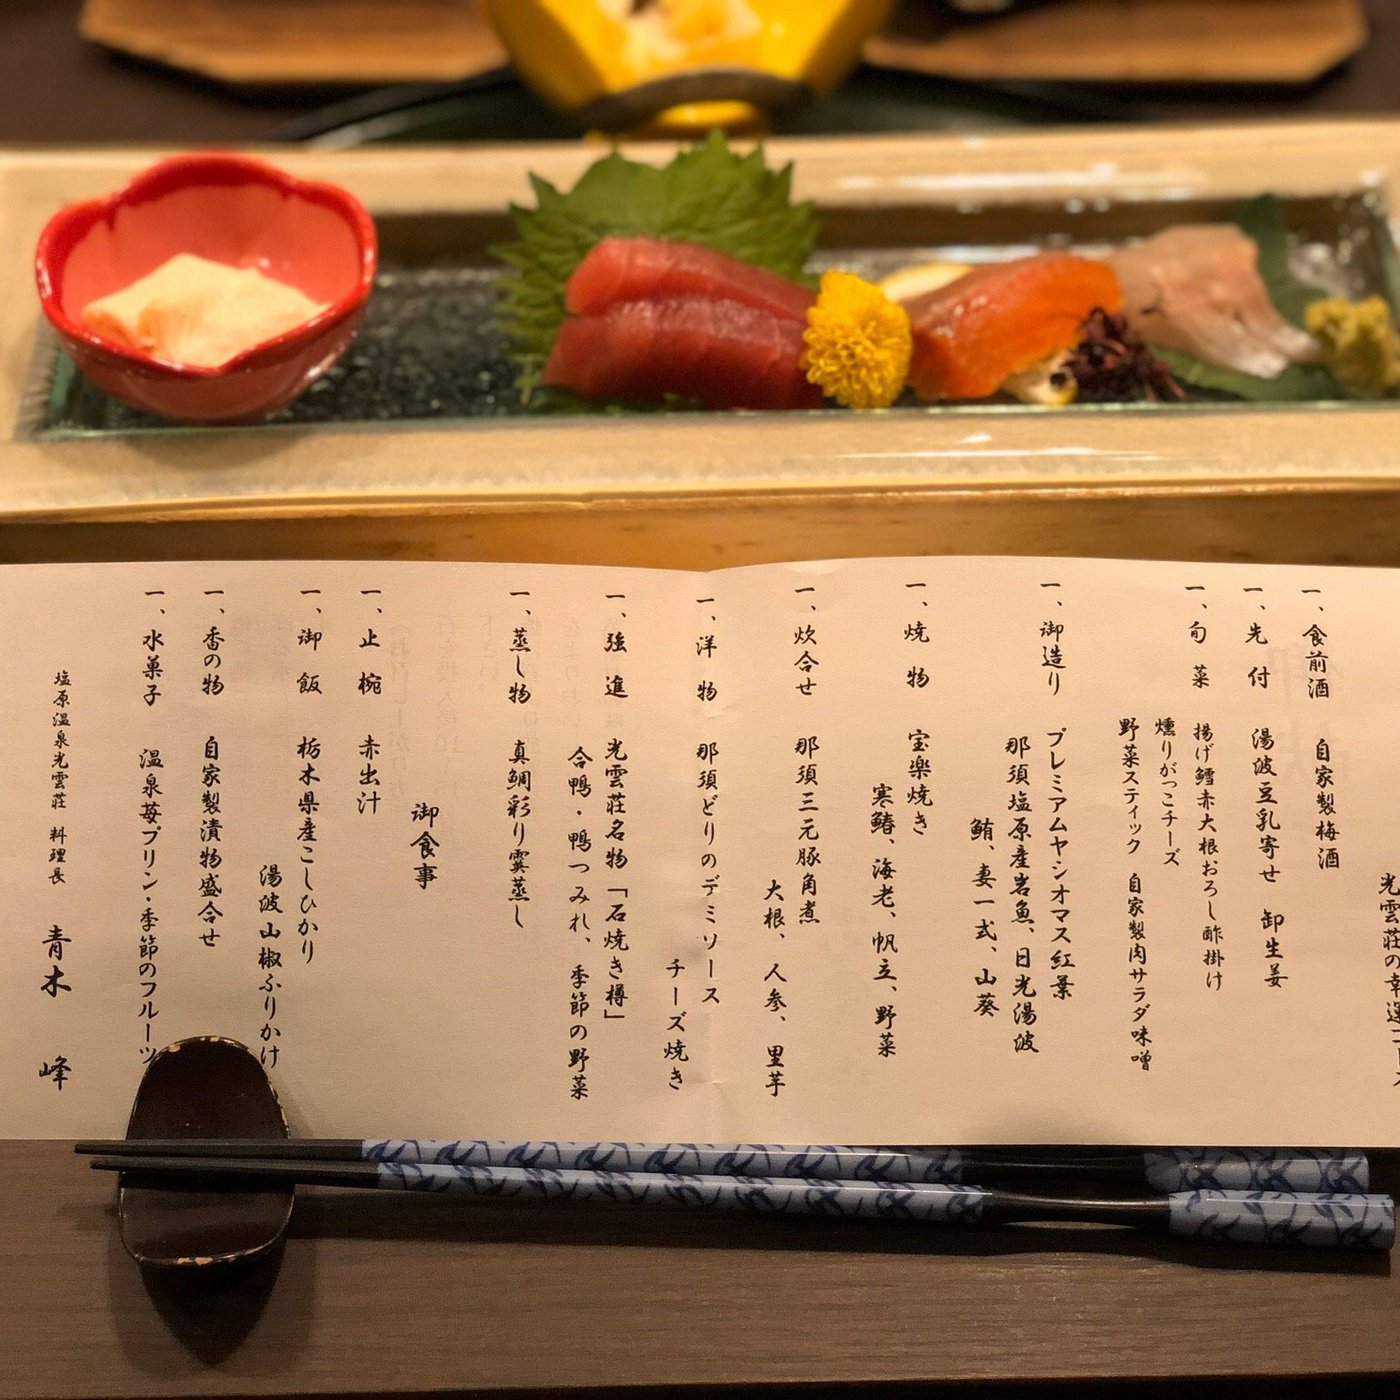 光雲荘の幸運コース
一、食前酒　自家製梅酒
一、先　付　湯波豆乳寄せ　卸生姜
一、旬　菜　揚げ鱈赤大根おろし酢掛け
燻りがっこチーズ
野菜スティック　自家製肉サラダ味噌
一、御造り　プレミアムヤシオマス紅葉
那須塩原産岩魚、日光湯波
鮪、妻一式、山葵
一、焼　物　宝楽焼き
寒鰆、海老、帆立、野菜
一、炊合せ　那須三元豚角煮
大根、人参、里芋
一、洋　物　那須どりのデミソース
チーズ焼き
一、強　進　光雲荘名物「石焼き樽」
合鴨・鴨つみれ、季節の野菜
一、蒸し物　真鯛彩り霙蒸し
御食事
一、止　椀　赤出汁
一、御　飯　栃木県産こしひかり
湯波山椒ふりかけ
一、香の物　自家製漬物盛合せ
一、水菓子　温泉苺プリン・季節のフルーツ
塩原温泉光雲荘　料理長　青木　峰